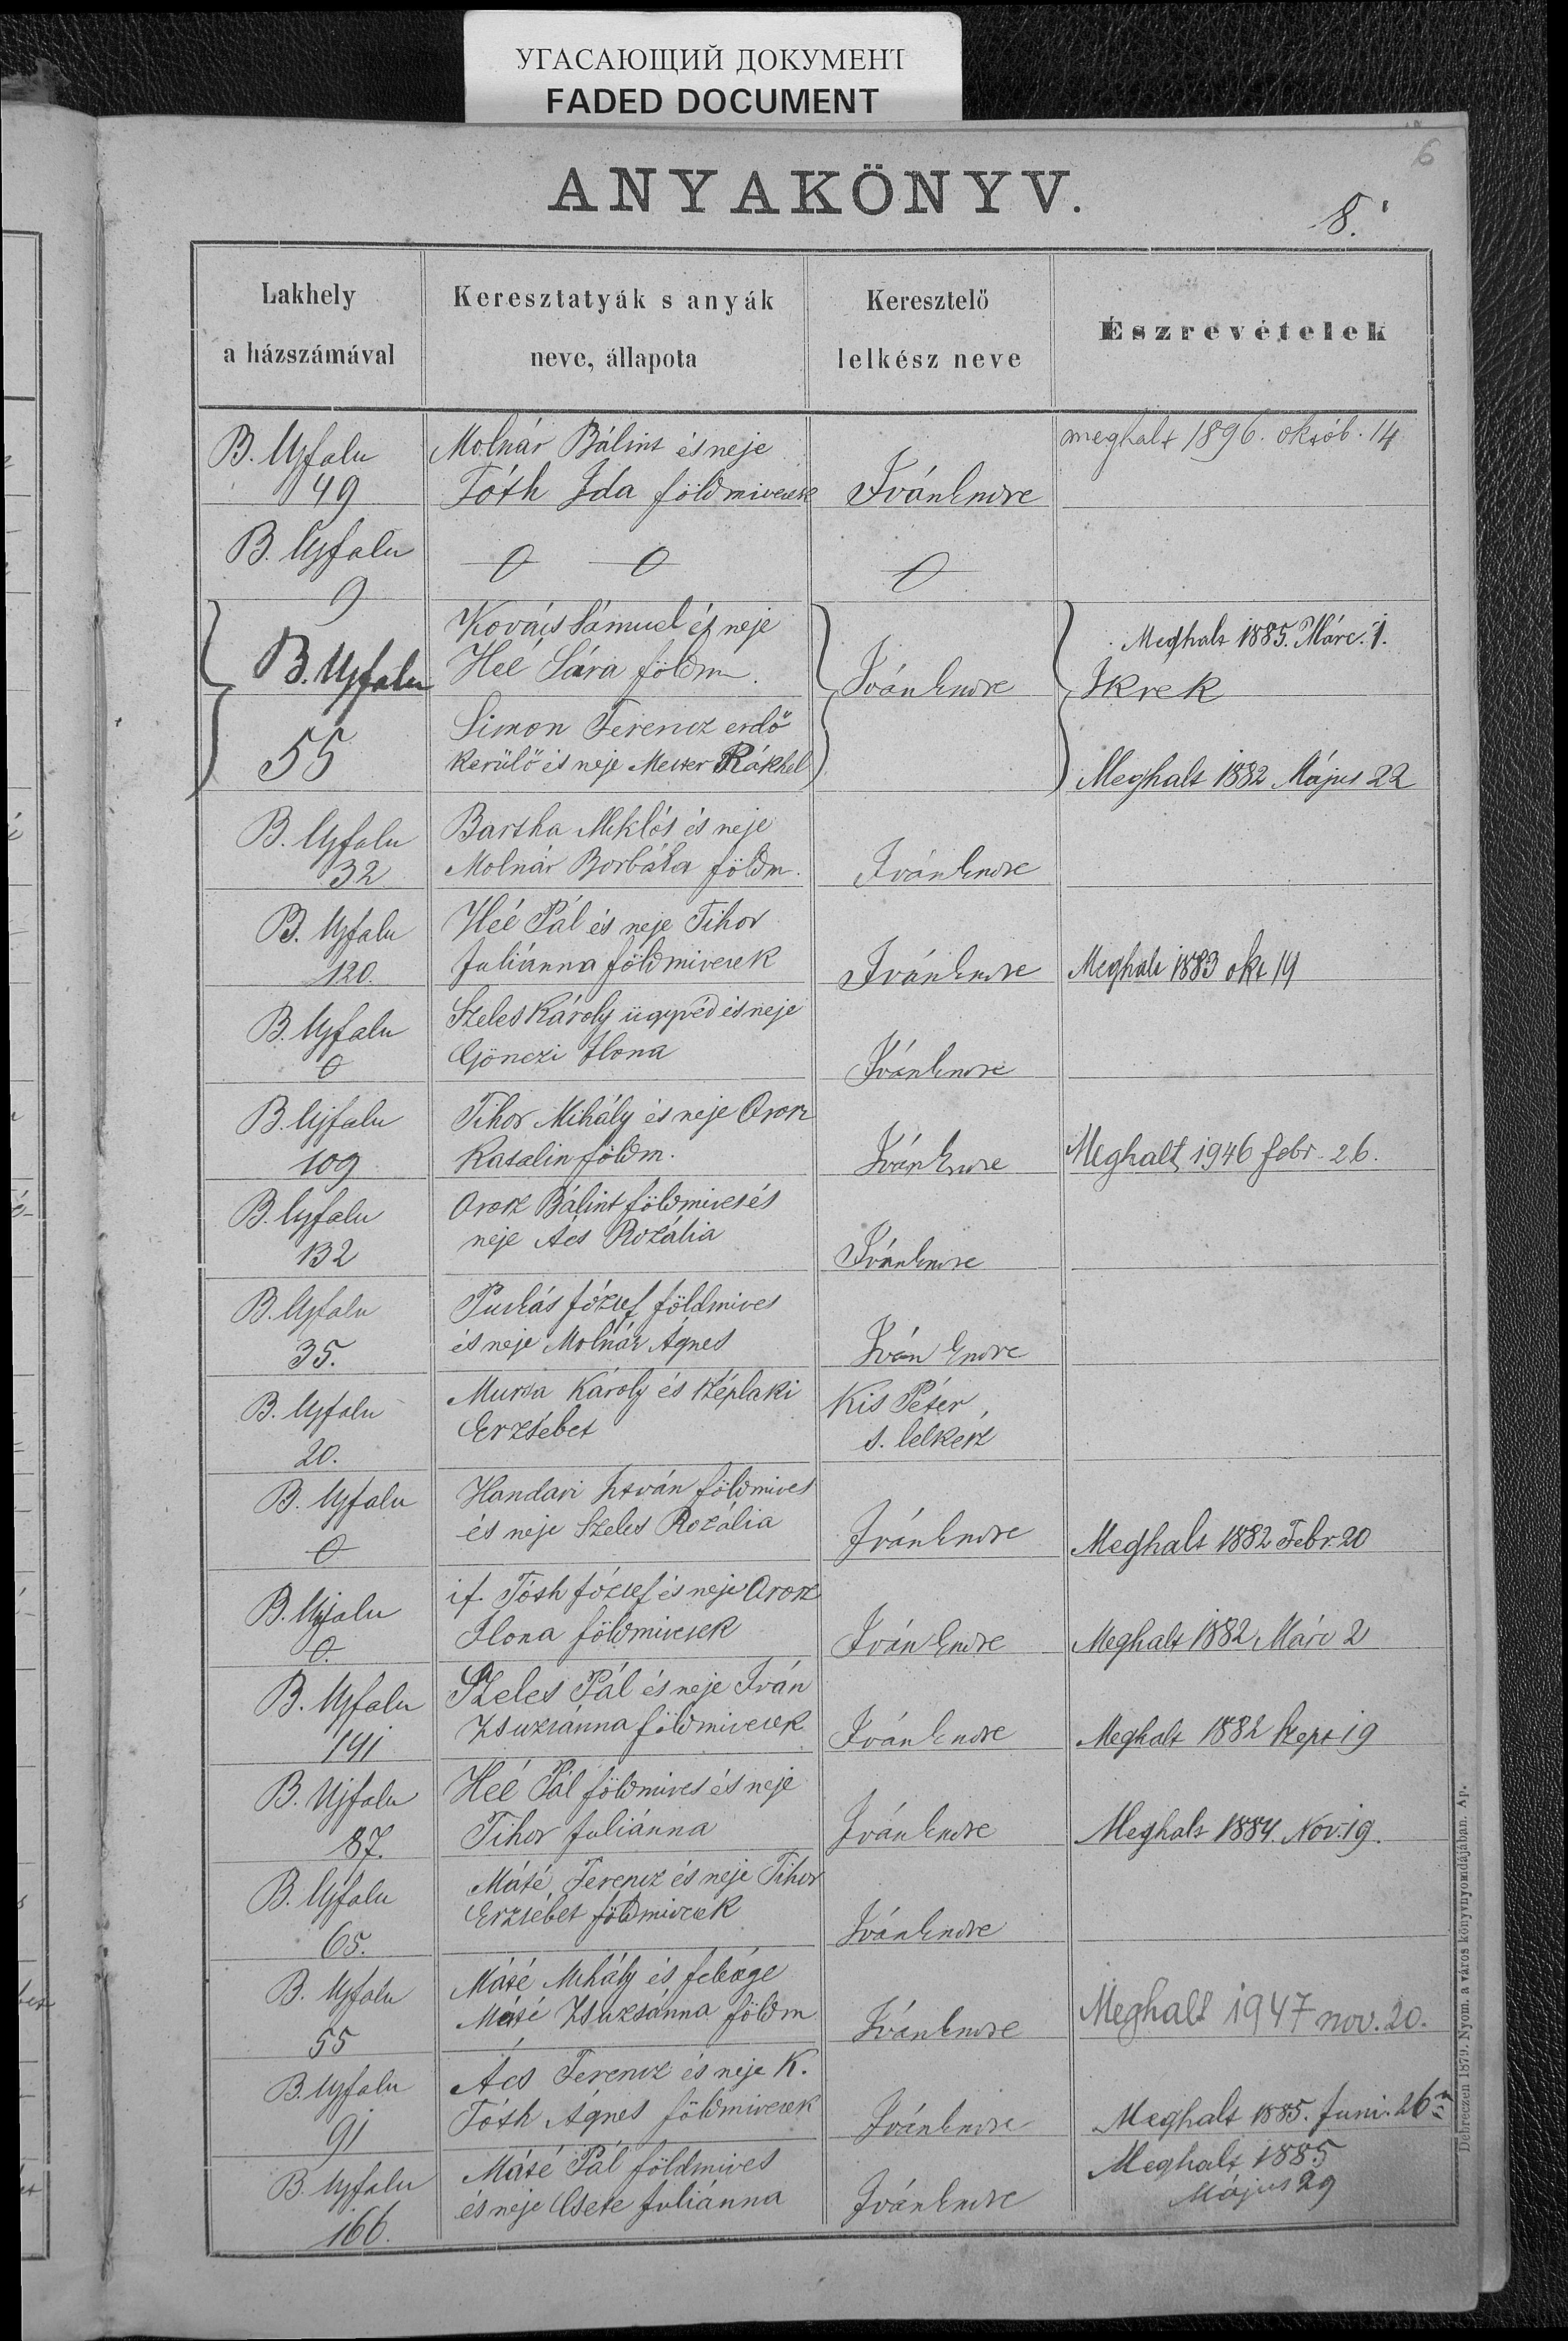 УГАСАЮЩИЙ ДОКУМЕНТ
FADED DOCUMENT
6
ANYAKÖNYV.
8.
Lakhely
a házszámával
Keresztatyák s anyák
neve, állapota
Keresztelő
lelkész neve
Észrevételek
B. Ujfalu
49
Molnár Bálint és neje
Tóth Ida földmivesek
Iván Endre
meghalt 1896. októb. 14
B. Ujfalu
9
0 0
0
B. Ujfalu
55
Kovács Sámuel és neje
Heé Sára földm.
Iván Endre
Meghalt 1885. Márc. 1.
Ikrek
Simon Ferencz erdő
kerülő és neje Mester Rákhel
Meghalt 1882 Május 22
B. Ujfalu
32
Bartha Miklós és neje
Molnár Borbála földm.
Iván Endre
B. Ujfalu
120.
Heé Pál és neje Tihor
Juliánna földmivesek
Iván Endre
Meghalt 1883 okt 19
B. Ujfalu
0
Szeles Károly ügyvéd és neje
Gönczi Ilona
Iván Endre
B. Ujfalu
109
Tihor Mihály és neje Orosz
Katalin földm.
Iván Endre
Meghalt 1946 febr. 26.
B. Ujfalu
132
Orosz Bálint földmives és
neje Ács Rozália
Iván Endre
B. Ujfalu
35.
Puskás József földmives
és neje Molnár Ágnes
Iván Endre
B. Ujfalu
20.
Murza Károly és Széplaki
Erzsébet
Kis Péter
s. lelkész
B. Ujfalu
0
Handari István földmives
és neje Szeles Rozália
Iván Endre
Meghalt 1882 Febr. 20
B. Ujfalu
0.
if. Tóth József és neje Orosz
Ilona földmivesek
Iván Endre
Meghalt 1882 Márc 2
B. Ujfalu
191
Szeles Pál és neje Iván
Zsuzsánna földmivesek
Iván Endre
Meghalt 1882 Szept 19
B. Ujfalu
87.
Heé Pál földmives és neje
Tihor Juliánna
Iván Endre
Meghalt 1884. Nov. 19.
B. Ujfalu
65.
Máté Ferencz és neje Tihor
Erzsébet földmivesek
Iván Endre
B. Ujfalu
55
Máté Mihály és felesége
Máté Zsuzsánna földm
Iván Endre
Meghalt 1947 nov. 20.
B. Ujfalu
91
Ács Ferencz és neje K.
Tóth Ágnes földmivesek
Iván Endre
Meghalt 1885. Juni. 26
B. Ujfalu
166.
Máté Pál földmives
és neje Csete Juliánna
Iván Endre
Meghalt 1885
Május 29
Debreczen 1879. Nyom. a város könyvnyomdájában. Ap.